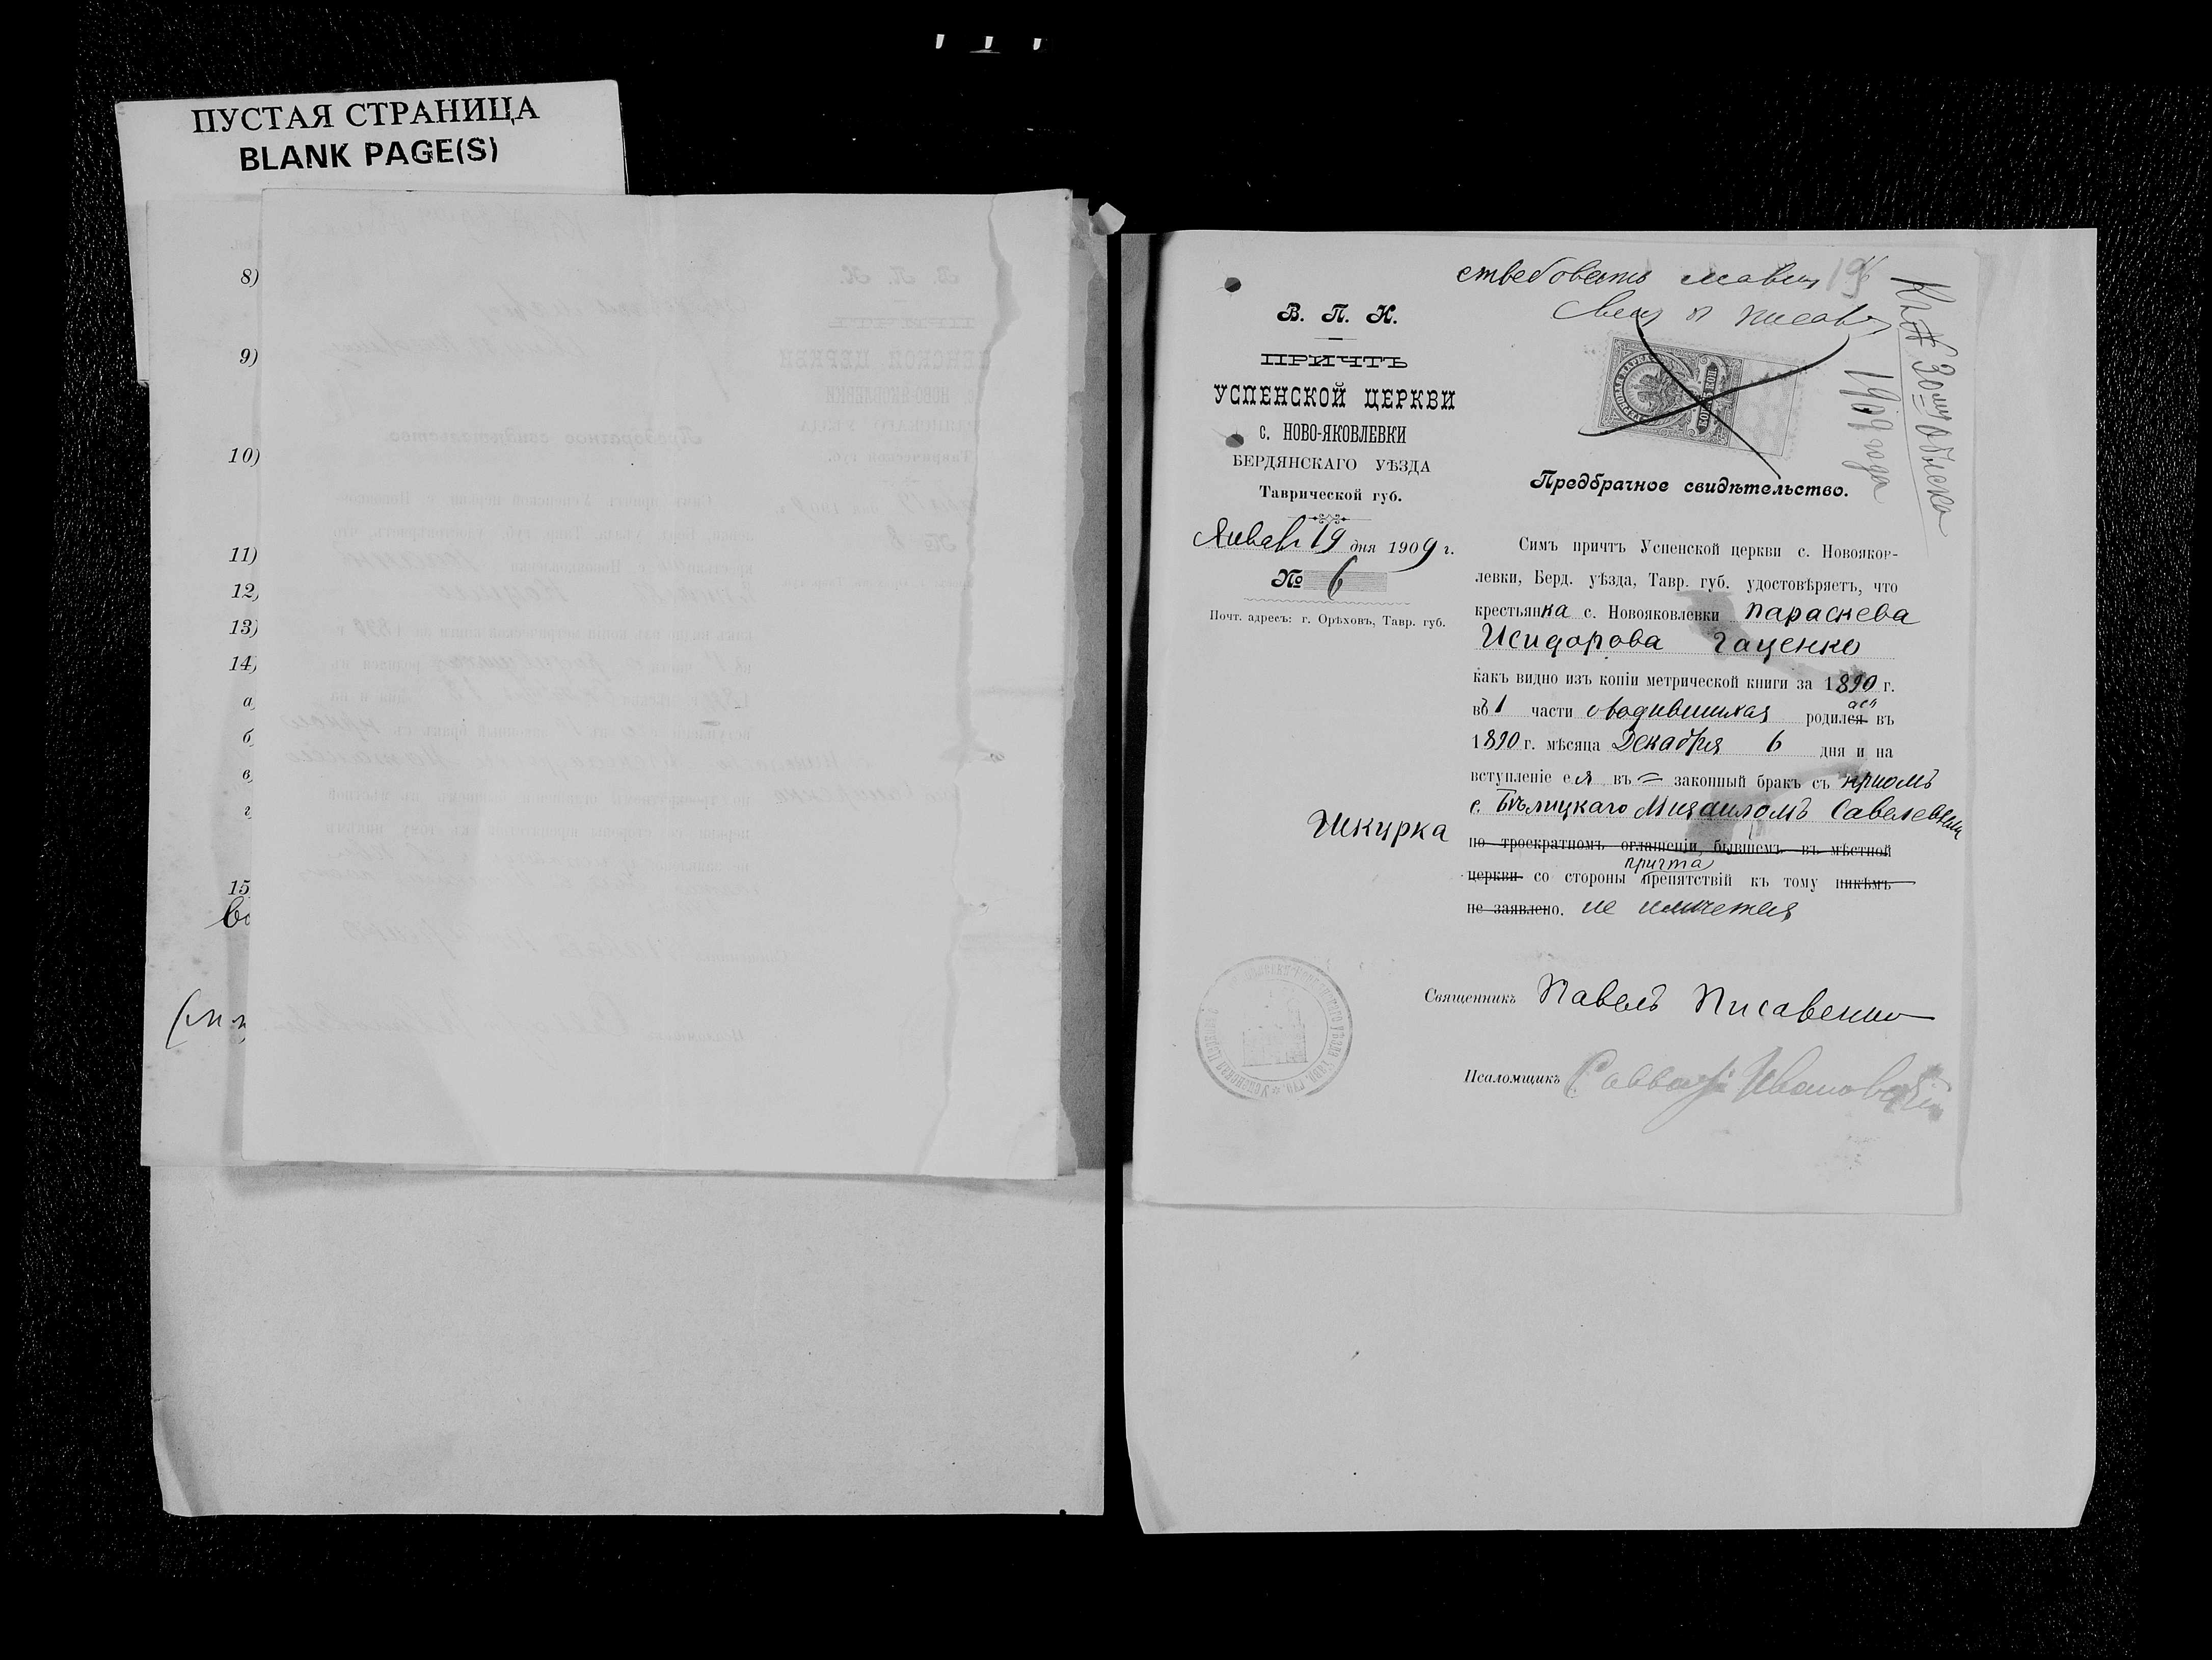 ПУСТАЯ СТРАНИЦА
BLANK PAGE(S)
8)
9)
10)
11)
12)
13)
14)
а
б
в
г
15
В. П. И.
ПРИЧТЪ
УСПЕНСКОЙ ЦЕРКВИ
с. НОВО-ЯКОВЛЕВКИ
БЕРДЯНСКАГО УѢЗДА
Таврической губ.
Январь 19 дня 1909 г.
№ 6
Почт. адресъ: г. Орѣховъ, Тавр. губ.
Къ 30му обыску
1909 года
Предбрачное свидѣтельство.
Симъ причтъ Успенской церкви с. Новояков-
левки, Берд. уѣзда, Тавр. губ. удостовѣряетъ, что
крестьянка с. Новояковлевки Параскева
Исидорова Гаценко
какъ видно изъ копіи метрической книги за 1890 г.
въ 1 части о родившихся родилася въ
1890 г. мѣсяца Декабря 6 дня и на
вступленіе ея въ = законный бракъ съ крномъ
с. Бѣлицкаго Михаиломъ Савелевымъ
Шкурка
по троекратномъ оглашеніи, бывшемъ въ мѣстной
церкви со стороны причта препятствій къ тому никѣмъ
не заявлено. не имеется
Священникъ Павелъ Писаренко
Псаломщикъ Ивановскій